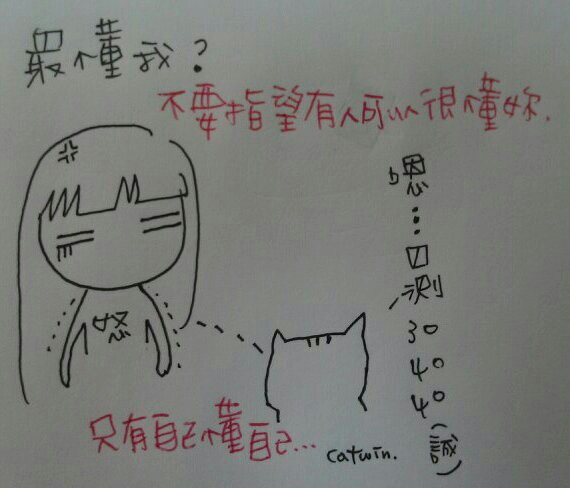 最懂我?
不要指望有人可以很懂妳.
嗯…目測304040(誤)
怒
只有自己懂自己…
catwin.